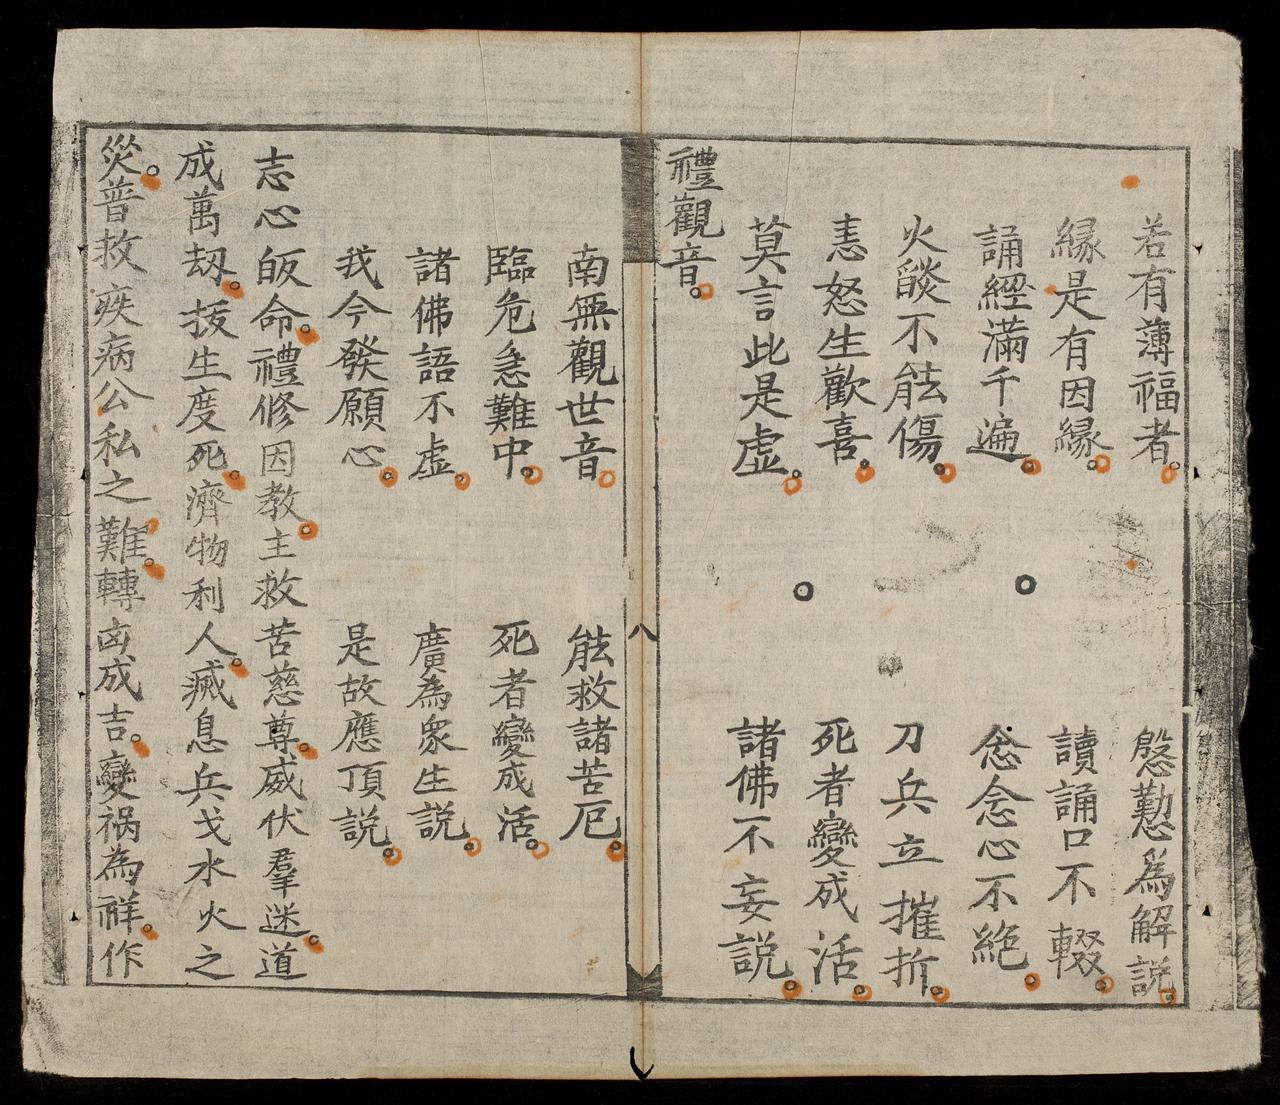 若有薄福者。慇懃為解説。
縁是有因縁。讀誦口不輟。
誦經滿千遍。念念心不絶。
火燄不能傷。刀兵立摧折。
恚怒生歡喜。死者變成活。
莫言此是虛。諸佛不妄説。
禮觀音。
八
南無觀世音。能救諸苦厄。
臨危急難中。死者變成活。
諸佛語不虛。廣為衆生説。
我今發願心。是故應頂説。
志心皈命。禮修因教。主救苦慈尊。威伏羣迷。道
成萬刼。拔生度死。濟物利人。滅息兵戈水火之
災。普救疾病公私之難。轉凶成吉。變祸為祥。作